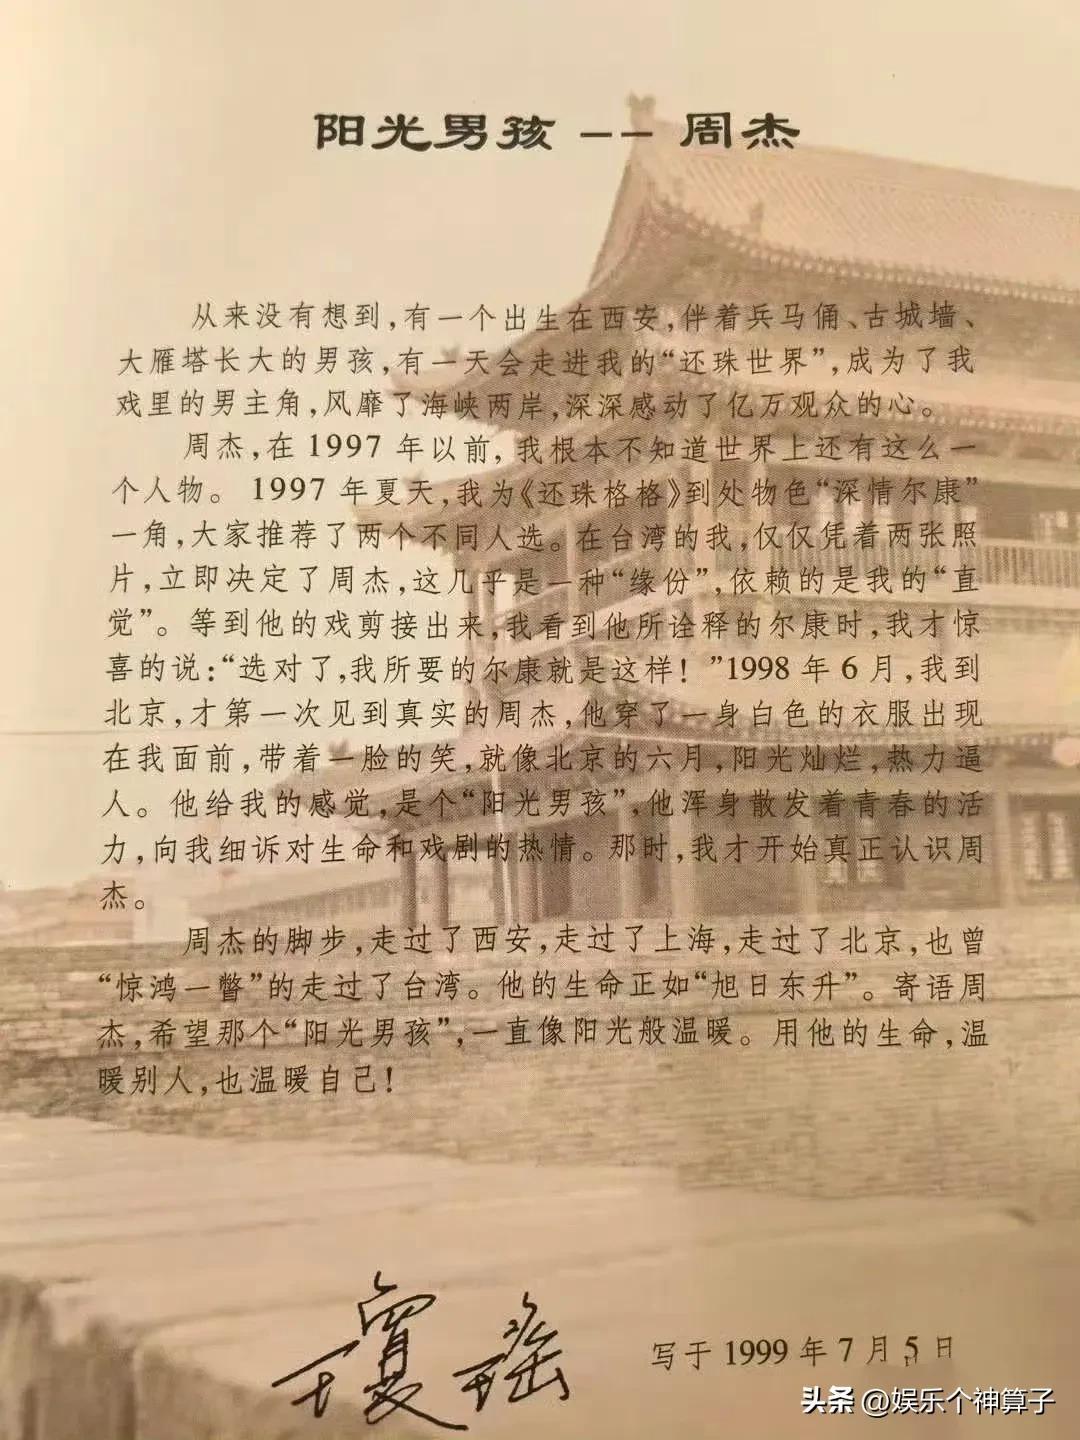 阳光男孩 -- 周杰
从来没有想到,有一个出生在西安,伴着兵马俑、古城墙、
大雁塔长大的男孩,有一天会走进我的“还珠世界”,成为了我
戏里的男主角,风靡了海峡两岸,深深感动了亿万观众的心。
周杰,在 1997 年以前,我根本不知道世界上还有这么一
个人物。 1997 年夏天,我为《还珠格格》到处物色“深情尔康”
一角,大家推荐了两个不同人选。在台湾的我,仅仅凭着两张照
片,立即决定了周杰,这几乎是一种“缘份”,依赖的是我的“直
觉”。等到他的戏剪接出来,我看到他所诠释的尔康时,我才惊
喜的说:“选对了,我所要的尔康就是这样! ”1998 年 6 月,我到
北京,才第一次见到真实的周杰,他穿了一身白色的衣服出现
在我面前,带着一脸的笑,就像北京的六月,阳光灿烂,热力逼
人。他给我的感觉,是个“阳光男孩”,他浑身散发着青春的活
力,向我细诉对生命和戏剧的热情。那时,我才开始真正认识周
杰。
周杰的脚步,走过了西安,走过了上海,走过了北京,也曾
“惊鸿一瞥”的走过了台湾。他的生命正如“旭日东升”。寄语周
杰,希望那个“阳光男孩”,一直像阳光般温暖。用他的生命,温
暖别人,也温暖自己!
琼瑶
写于 1999 年 7 月 5 日
头条 @娱乐个神算子